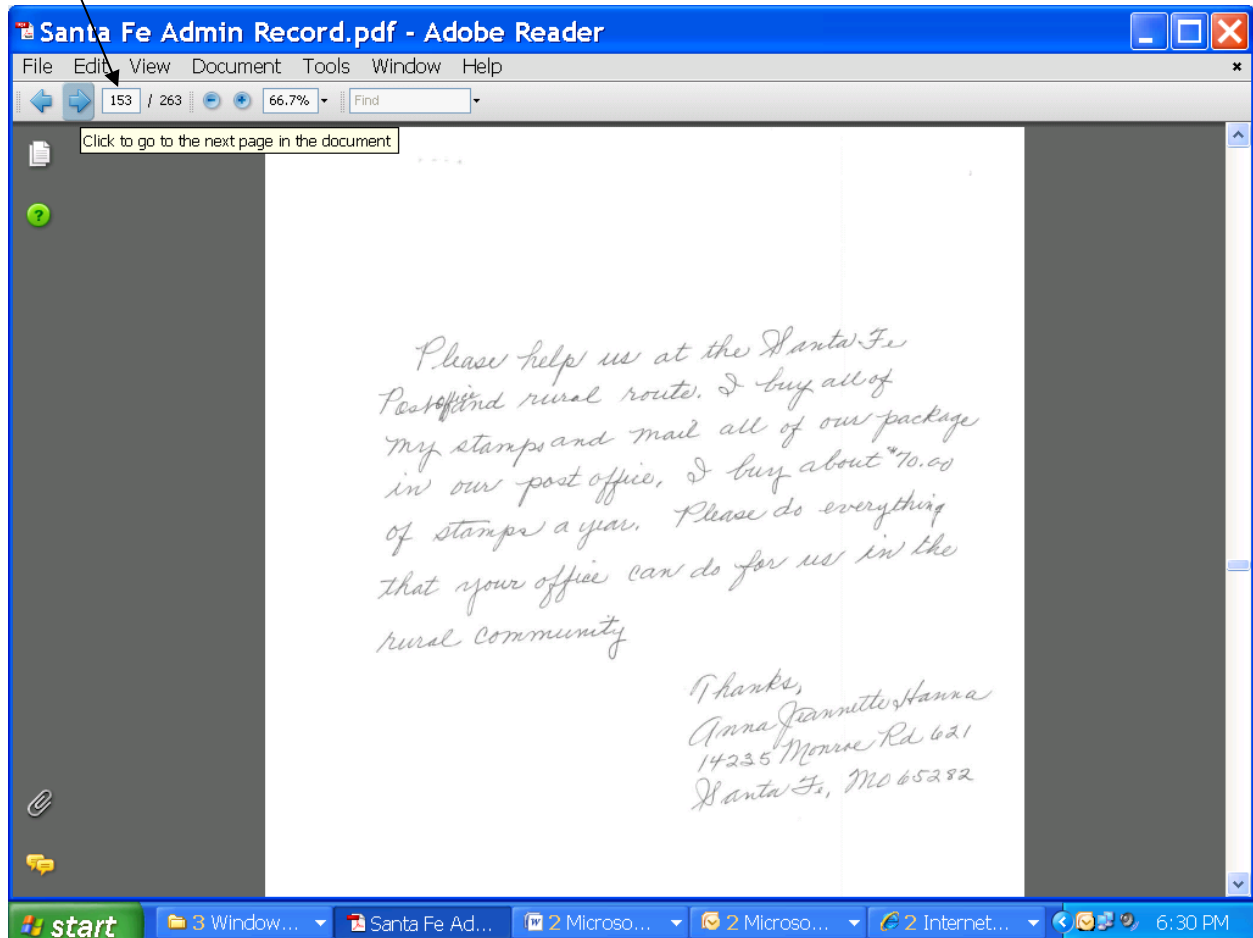 Santa Fe Admin Record.pdf - Adobe Reader
File Edit View Document Tools Window Help
153 / 263 66.7% Find
Click to go to the next page in the document
Please help us at the Santa Fe
Post office and rural route. I buy all of
my stamps and mail all of our package
in our post office, I buy about $70.00
of stamps a year. Please do everything
that your office can do for us in the
rural community
Thanks,
Anna Jeannette Hanna
14235 Monroe Rd 621
Santa Fe, MO 65282
start 3 Window... Santa Fe Ad... 2 Microso... 2 Microso... 2 Internet... 6:30 PM